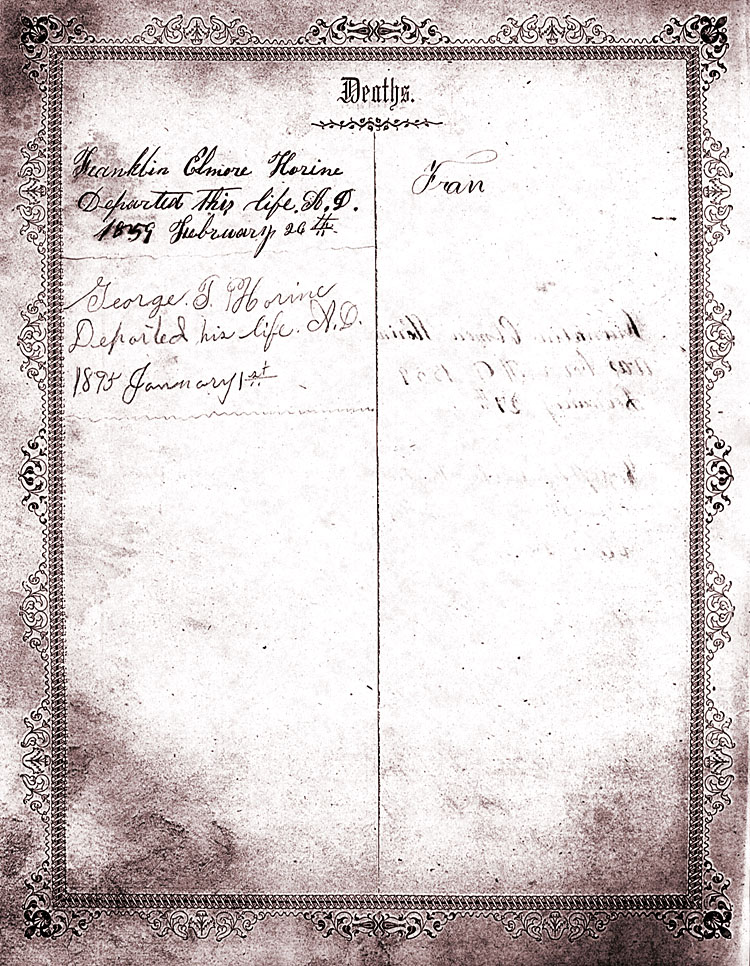 Deaths.
Franklin Elmore Horine
Departed this life. A.D.
1859 February 26th
George. T. Horine
Departed his life. A.D.
1895 January 1st
Fran